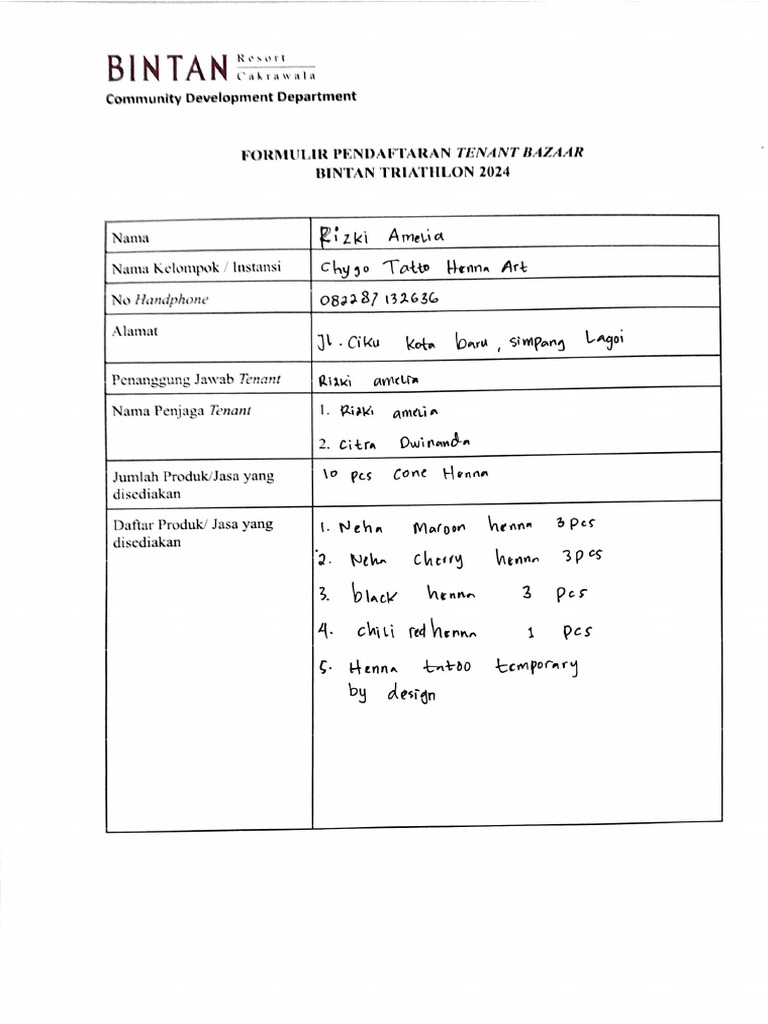 BINTAN Resort
Cakrawala
Community Development Department
FORMULIR PENDAFTARAN TENANT BAZAAR
BINTAN TRIATHLON 2024
Nama Rizki Amelia
Nama Kelompok / Instansi Chygo Tatto Henna Art
No Handphone 082287132636
Alamat Jl. Ciku Kota baru, simpang Lagoi
Penanggung Jawab Tenant Rizki amelia
Nama Penjaga Tenant 1. Rizki amelia
2. Citra Dwinanda
Jumlah Produk/Jasa yang 10 pcs Cone Henna
disediakan
Daftar Produk/ Jasa yang 1. Neha Maroon henna 3 pcs
disediakan
2. Neha Cherry henna 3 pcs
3. black henna 3 pcs
4. chili red henna 1 pcs
5. Henna tatoo temporary
by design